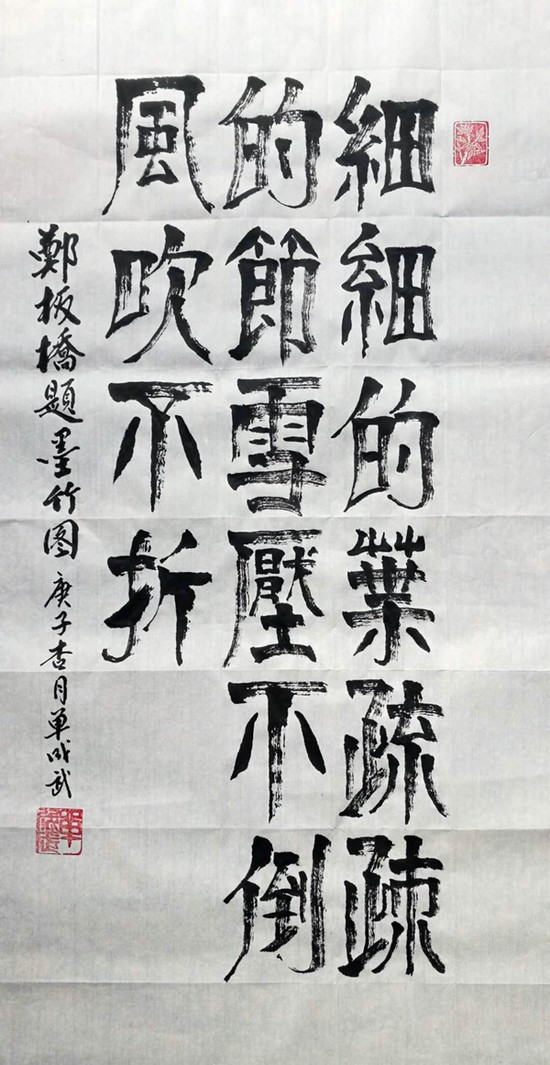 細細的葉疏疏
的節雪壓不倒
風吹不折
鄭板橋題墨竹图 庚子杏月单成武